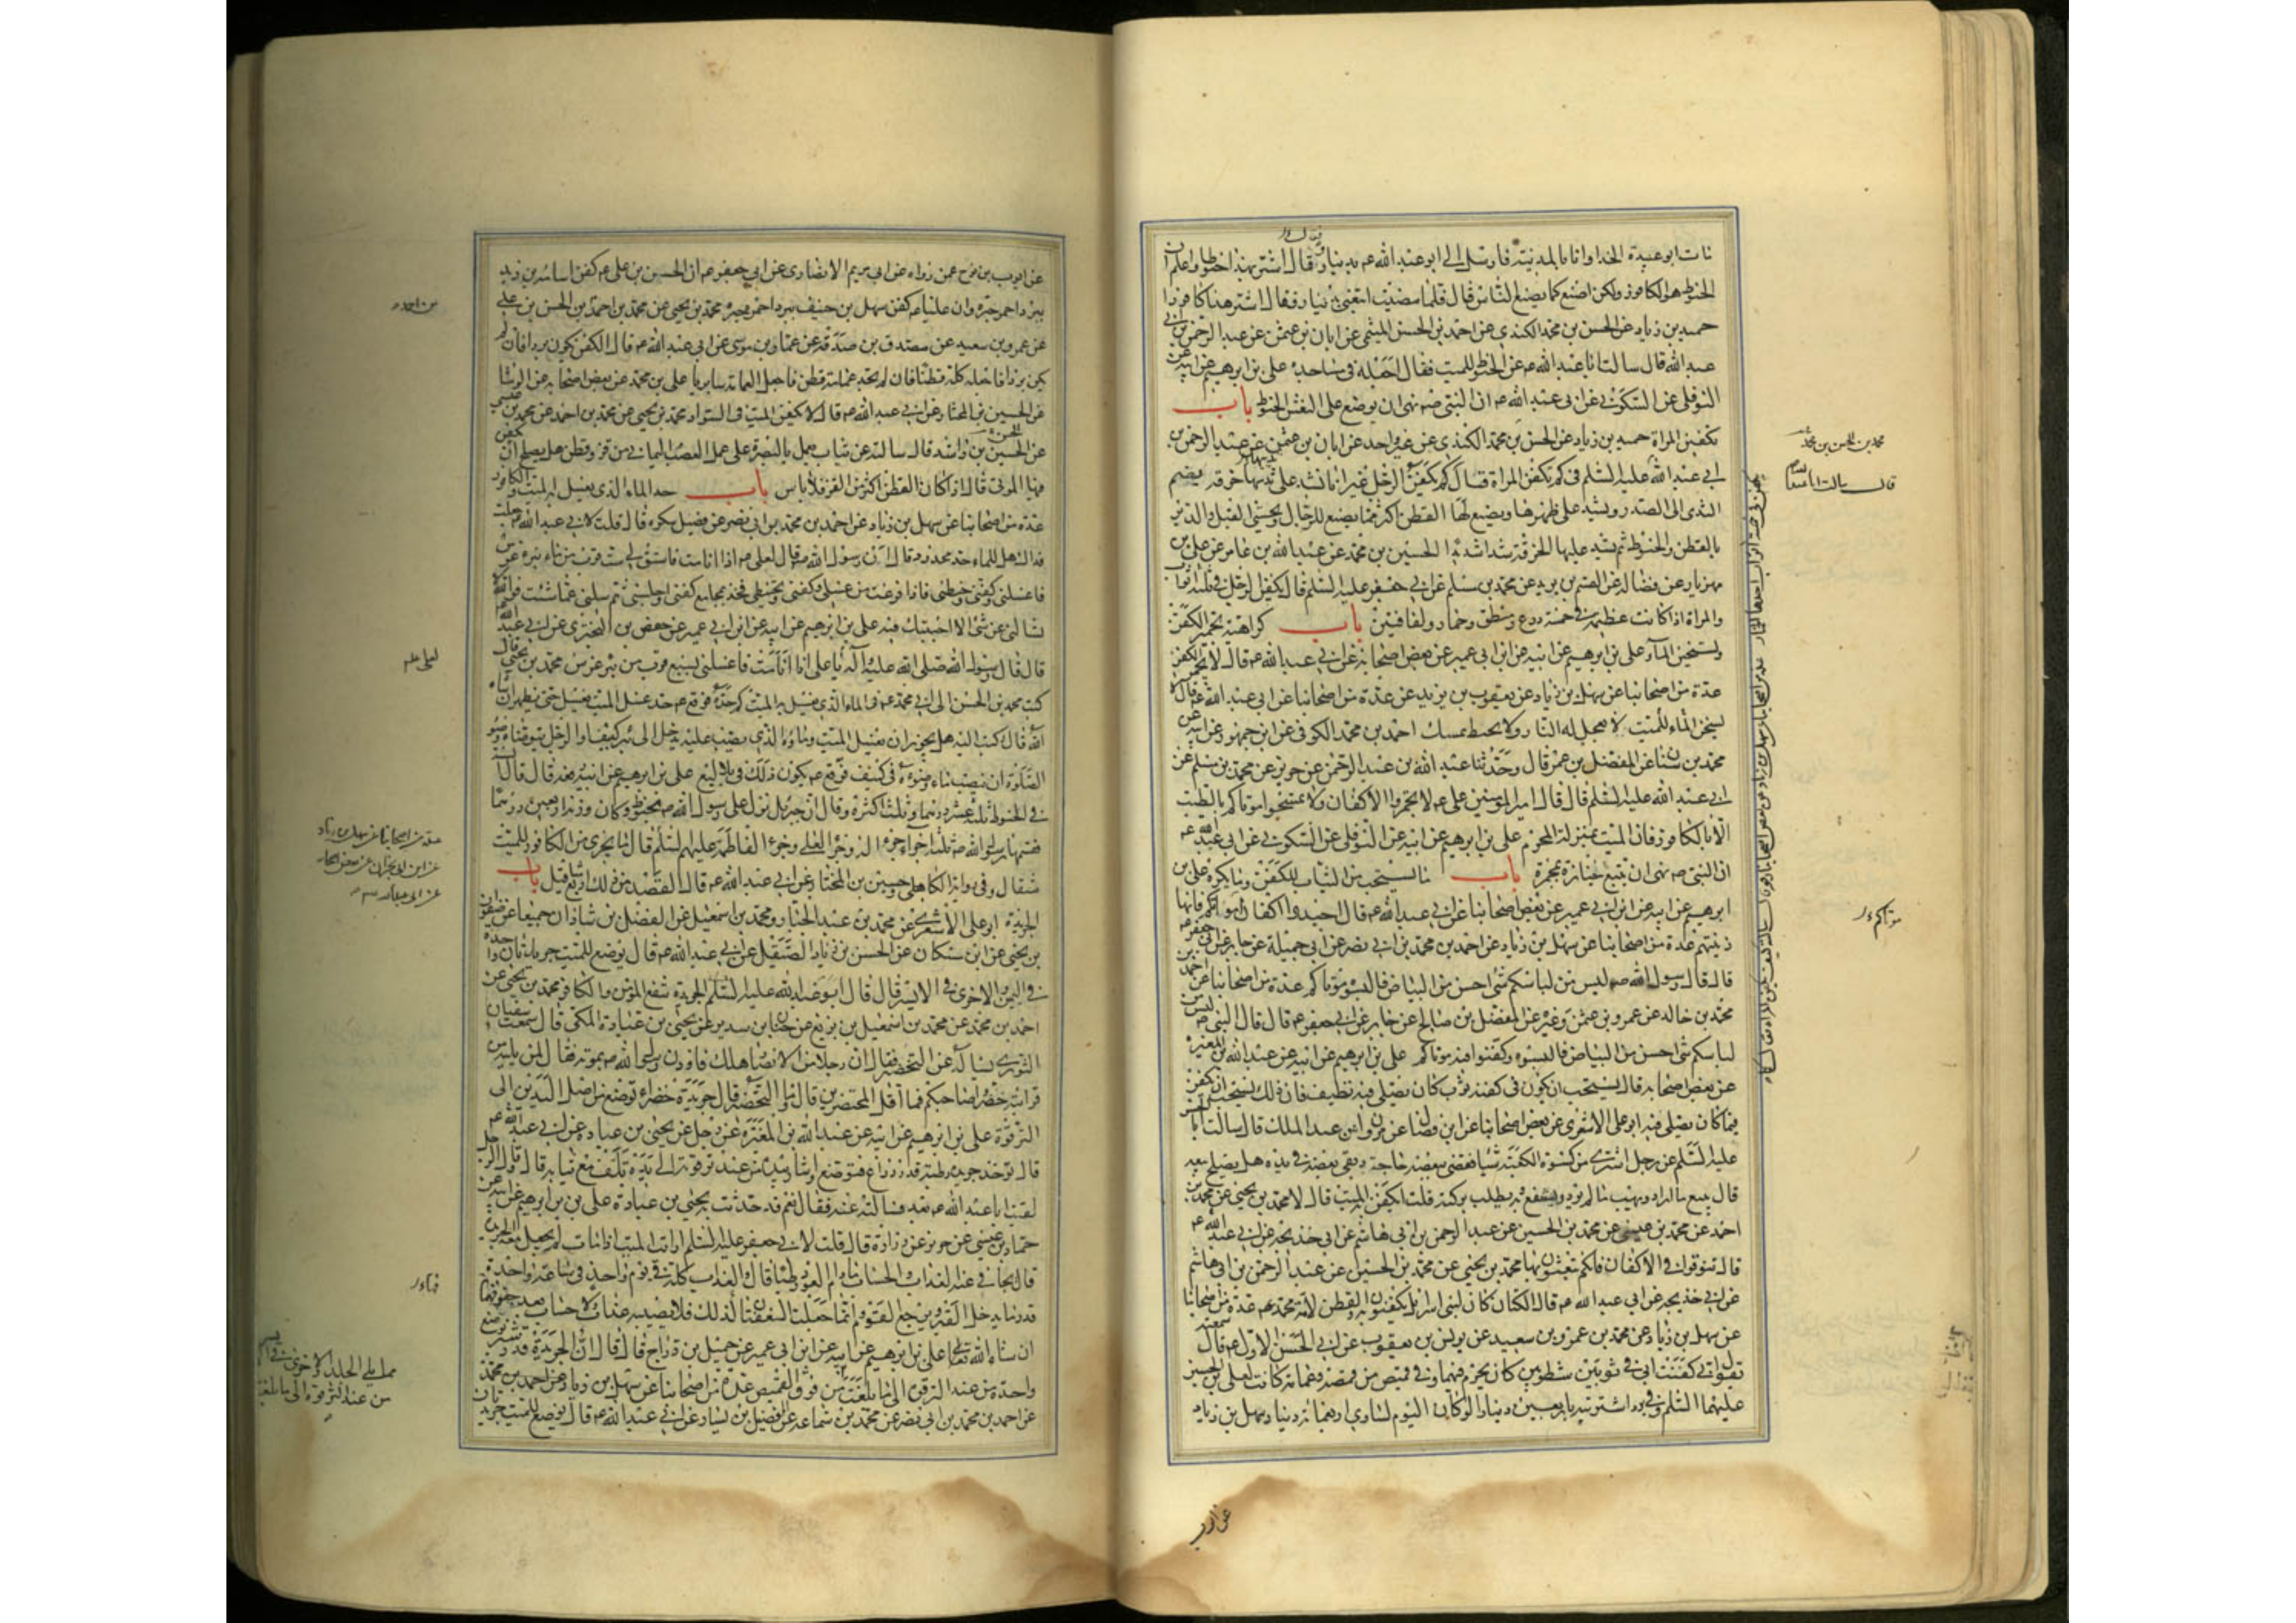 مات ابو عبيدة الحذاء وانا بالمدينة فارسل الى ابو عبد الله ع بدينار فقال اشتر بهذا حنوطا واعلم ان
الحنوط هو الكافور ولكن اصنع كما يصنع الناس قال فلما مضيت اتبعنى بدينار وقال اشتر بهذا كافورا
حميد بن زياد عن الحسن بن محمد الكندى عن احمد بن الحسن الميثمى عن ابان بن عثمن عن عبد الرحمن بن ابى
عبد الله قال سالت ابا عبد الله ع عن الحنوط للميت فقال اجعله فى مساجده على بن ابرهيم عن ابيه عن
النوفلى عن السكونى عن ابى عبد الله ع ان النبى ص نهى ان يوضع على النعش الحنوط باب
تكفين المراة حميد بن زياد عن الحسن بن محمد الكندى عن غير واحد عن ابان بن عثمن عن عبد الرحمن بن
ابى عبد الله عليه السلم فى كم تكفن المراة قال كم تكفين الرجل غير انا نشد على ثدييها خرقة يضم
الثدى الى الصدر ويشد على ظهرها ويصنع لها القطن اكثر مما يصنع للرجال ويحشى القبل والدبر
بالقطن والحنوط ثم يشد عليها الخرقة شدا شديدا الحسين بن محمد عن عبد الله بن عامر عن على بن
مهزيار عن فضالة عن القسم بن بريد عن محمد بن مسلم عن ابى جعفر عليه السلم قال يكفن الرجل فى ثلثة اثواب
والمراة اذا كانت عظيمة فى خمسة درع ومنطق وخمار ولفافتين باب كراهية تجمير الكفن
وتسخين الماء على بن ابرهيم عن ابيه عن ابن ابى عمير عن بعض اصحابنا عن ابى عبد الله ع قال لا يجمر الكفن
عدة من اصحابنا عن سهل بن زياد عن يعقوب بن يزيد عن عدة من اصحابنا عن ابى عبد الله ع قال لا
يسخن الماء للميت لا يعجل له النار ولا يحنط بمسك احمد بن محمد الكوفى عن ابن جمهور عن ابيه عن
محمد بن سنان عن المفضل بن عمر قال وحدثنا عبد الله بن عبد الرحمن عن حريز عن محمد بن مسلم عن
ابى عبد الله عليه السلم قال قال امير المومنين على ع لا تجمروا الاكفان ولا تمسحوا موتاكم بالطيب
الا بالكافور فان الميت بمنزلة المحرم على بن ابرهيم عن ابيه عن النوفلى عن السكونى عن ابى عبد الله ع
ان النبى ص نهى ان يتبع جنازة بمجمرة باب ما يستحب من الثياب للكفن وما يكره على بن
ابرهيم عن ابيه عن ابن ابى عمير عن بعض اصحابنا عن ابى عبد الله ع قال اجيدوا اكفان موتاكم فانها
زينتهم عدة من اصحابنا عن سهل بن زياد عن احمد بن محمد بن ابى نصر عن ابى جميلة عن جابر عن ابى جعفر ع
قال قال رسول الله ص ليس من لباسكم شئ احسن من البياض فالبسوه موتاكم عدة من اصحابنا عن احمد بن
محمد بن خالد عن عمرو بن عثمن وغيره عن المفضل بن صالح عن جابر عن ابى جعفر ع قال قال النبى ص ليس من
لباسكم شئ احسن من البياض فالبسوه وكفنوا فيه موتاكم على بن ابرهيم عن ابيه عن عبد الله بن المغيرة
عن بعض اصحابه قال يستحب ان يكون فى كفنه ثوب كان يصلى فيه نظيف فان ذلك يستحب ان يكفن
فيما كان يصلى فيه ابو على الاشعرى عن بعض اصحابنا عن ابن فضال عن مروان عن عبد الملك قال سالت ابا الحسن
عليه السلم عن رجل اشترى من كسوة الكعبة شيئا فقضى ببعضه حاجته وبقى بعضه فى يده هل يصلح بيعه
قال يبيع ما اراد ويهب ما لم يرد ويستنفع به ويطلب بركته قلت ايكفن به الميت قال لا محمد بن يحيى عن محمد بن
احمد عن محمد بن عيسى عن محمد بن الحسين عن عبد الرحمن بن ابى هاشم عن ابى خديجة عن ابى عبد الله ع
قال تنوقوا فى الاكفان فانكم تبعثون بها محمد بن يحيى عن محمد بن الحسين عن عبد الرحمن بن ابى هاشم
عن ابى خديجة عن ابى عبد الله ع قال الكتان كان لبنى اسرائيل يكفنون به والقطن لامة محمد ص عدة من اصحابنا
عن سهل بن زياد عن محمد بن عمرو بن سعيد عن يونس بن يعقوب عن ابى الحسن الاول ع قال سمعته
يقول انى كفنت ابى فى ثوبين شطويين كان يحرم فيهما وفى قميص من قمصه وعمامة كانت لعلى بن الحسين
عليهما السلم وفى برد اشتريته باربعين دينارا لو كان اليوم لساوى اربعمائة دينار سهل بن زياد
محمد بن الحسن بن محمد
قال سالت ابا عبد الله
موتاكم
عن ايوب
عن ايوب بن نوح عمن رواه عن ابى مريم الانصارى عن ابى جعفر ع ان الحسن بن على ع كفن اسامة بن زيد
ببرد احمر حبرة وان عليا ع كفن سهل بن حنيف ببرد احمر حبرة محمد بن يحيى عن محمد بن احمد بن الحسن بن على
عن عمرو بن سعيد عن مصدق بن صدقة عن عمار بن موسى عن ابى عبد الله ع قال الكفن يكون بردا فان لم
يكن بردا فاجعله كله قطنا فان لم تجد عمامة قطن فاجعل العمامة سابريا على بن محمد عن بعض اصحابه عن الوشا
عن الحسين بن المختار عن ابى عبد الله ع قال لا يكفن الميت فى السواد محمد بن يحيى عن محمد بن احمد عن محمد بن عيسى
عن الحسين بن راشد قال سالته عن ثياب تعمل بالبصرة على عمل العصب اليمانى من قز وقطن هل يصلح ان يكفن
فيها الموتى قال اذا كان القطن اكثر من القز فلا باس باب حد الماء الذى يغسل به الميت والكافور
عدة من اصحابنا عن سهل بن زياد عن احمد بن محمد بن ابى نصر عن فضيل سكره قال قلت لابى عبد الله ع جعلت
فداك هل للماء حد محدود قال ان رسول الله ص قال لعلى ع اذا انا مت فاستق لى ست قرب من ماء بير غرس
فاغسلنى وكفنى وحنطنى فاذا فرغت من غسلى وكفنى وتحنيطى فخذ بمجامع كفنى واجلسنى ثم سلنى عما شئت فوالله لا
تسالنى عن شئ الا اجبتك فيه على بن ابرهيم عن ابيه عن ابن ابى عمير عن حفص بن البخترى عن ابى عبد الله ع
قال قال رسول الله صلى الله عليه وآله يا على اذا انا مت فاغسلنى بسبع قرب من بير غرس محمد بن يحيى قال
كتب محمد بن الحسن الى ابى محمد ع فى الماء الذى يغسل به الميت كم حده فوقع ع حد غسل الميت يغسل حتى يطهر ان شاء
الله قال وكتب اليه هل يجوز ان يغسل الميت وماؤه الذى يصب عليه يدخل الى بئر كنيف او الرجل يتوضا وضوء
الصلوة ان يصب ماء وضوءه فى كنيف فوقع ع يكون ذلك فى بلاليع على بن ابرهيم عن ابيه رفعه قال قال السنة
فى الحنوط ثلثة عشر درهما وثلث اكثره وقال ان جبرئيل نزل على رسول الله ص بحنوط وكان وزنه اربعين درهما
فقسمها رسول الله ص ثلثة اجزاء جزء له وجزء لعلى وجزء لفاطمة عليهم السلم
مثقال وفى رواية الكاهلى وحسين بن المختار عن ابى عبد الله ع قال القصد من ذلك اربعة مثاقيل باب
الجريدة ابو على الاشعرى عن محمد بن عبد الجبار ومحمد بن اسمعيل عن الفضل بن شاذان جميعا عن صفوان
بن يحيى عن ابن مسكان عن الحسن بن زياد الصيقل عن ابى عبد الله ع قال يوضع للميت جريدتان واحدة
فى اليمين والاخرى فى الايسر قال قال ابو عبد الله عليه السلم الجريدة تنفع المؤمن والكافر محمد بن يحيى عن
احمد بن محمد عن محمد بن اسمعيل بن بزيع عن حنان بن سدير عن يحيى بن عبادة المكى قال سمعت سفيان
الثورى يساله عن التخضير فقال ان رجلا من الانصار هلك فاوذن رسول الله ص بموته فقال لمن يليه من
قرابته خضروا صاحبكم فما اقل المخضرين قال وما التخضير قال جريدة خضراء توضع من اصل اليدين الى
الترقوة على بن ابرهيم عن ابيه عن عبد الله بن المغيرة عن رجل عن يحيى بن عبادة عن ابى عبد الله ع
قال تؤخذ جريدة رطبة قدر ذراع فتوضع واشار بيده من عند ترقوته الى يده تلف مع ثيابه قال وقال الرجل
لقيت ابا عبد الله ع بعد فسالته عنه فقال نعم قد حدثت به يحيى بن عبادة على بن ابرهيم عن ابيه عن
حماد بن عيسى عن حريز عن زرارة قال قلت لابى جعفر عليه السلم ارايت الميت اذا مات لم يجعل معه الجريدة
قال يجافى عنه العذاب والحساب ما دام العود رطبا قال والعذاب كله فى يوم واحد فى ساعة واحدة
قدر ما يدخل القبر ويرجع القوم وانما جعلت السعفتان لذلك فلا يصيبه عذاب ولا حساب بعد جفوفهما
ان شاء الله تعالى على بن ابرهيم عن ابيه عن ابن ابى عمير عن جميل بن دراج قال قال ان الجريدة قدر شبر توضع
واحدة من عند الترقوة الى ما بلغت من فوق القميص عدة من اصحابنا عن سهل بن زياد عن احمد بن محمد
عن احمد بن محمد بن ابى نصر عن محمد بن سماعة عن فضيل بن يسار عن ابى عبد الله ع قال توضع للميت جريدتان
عدة من اصحابنا عن سهل بن زياد
مما يلى الجلد والاخرى فى الايسر
من عند الترقوة الى ما بلغت